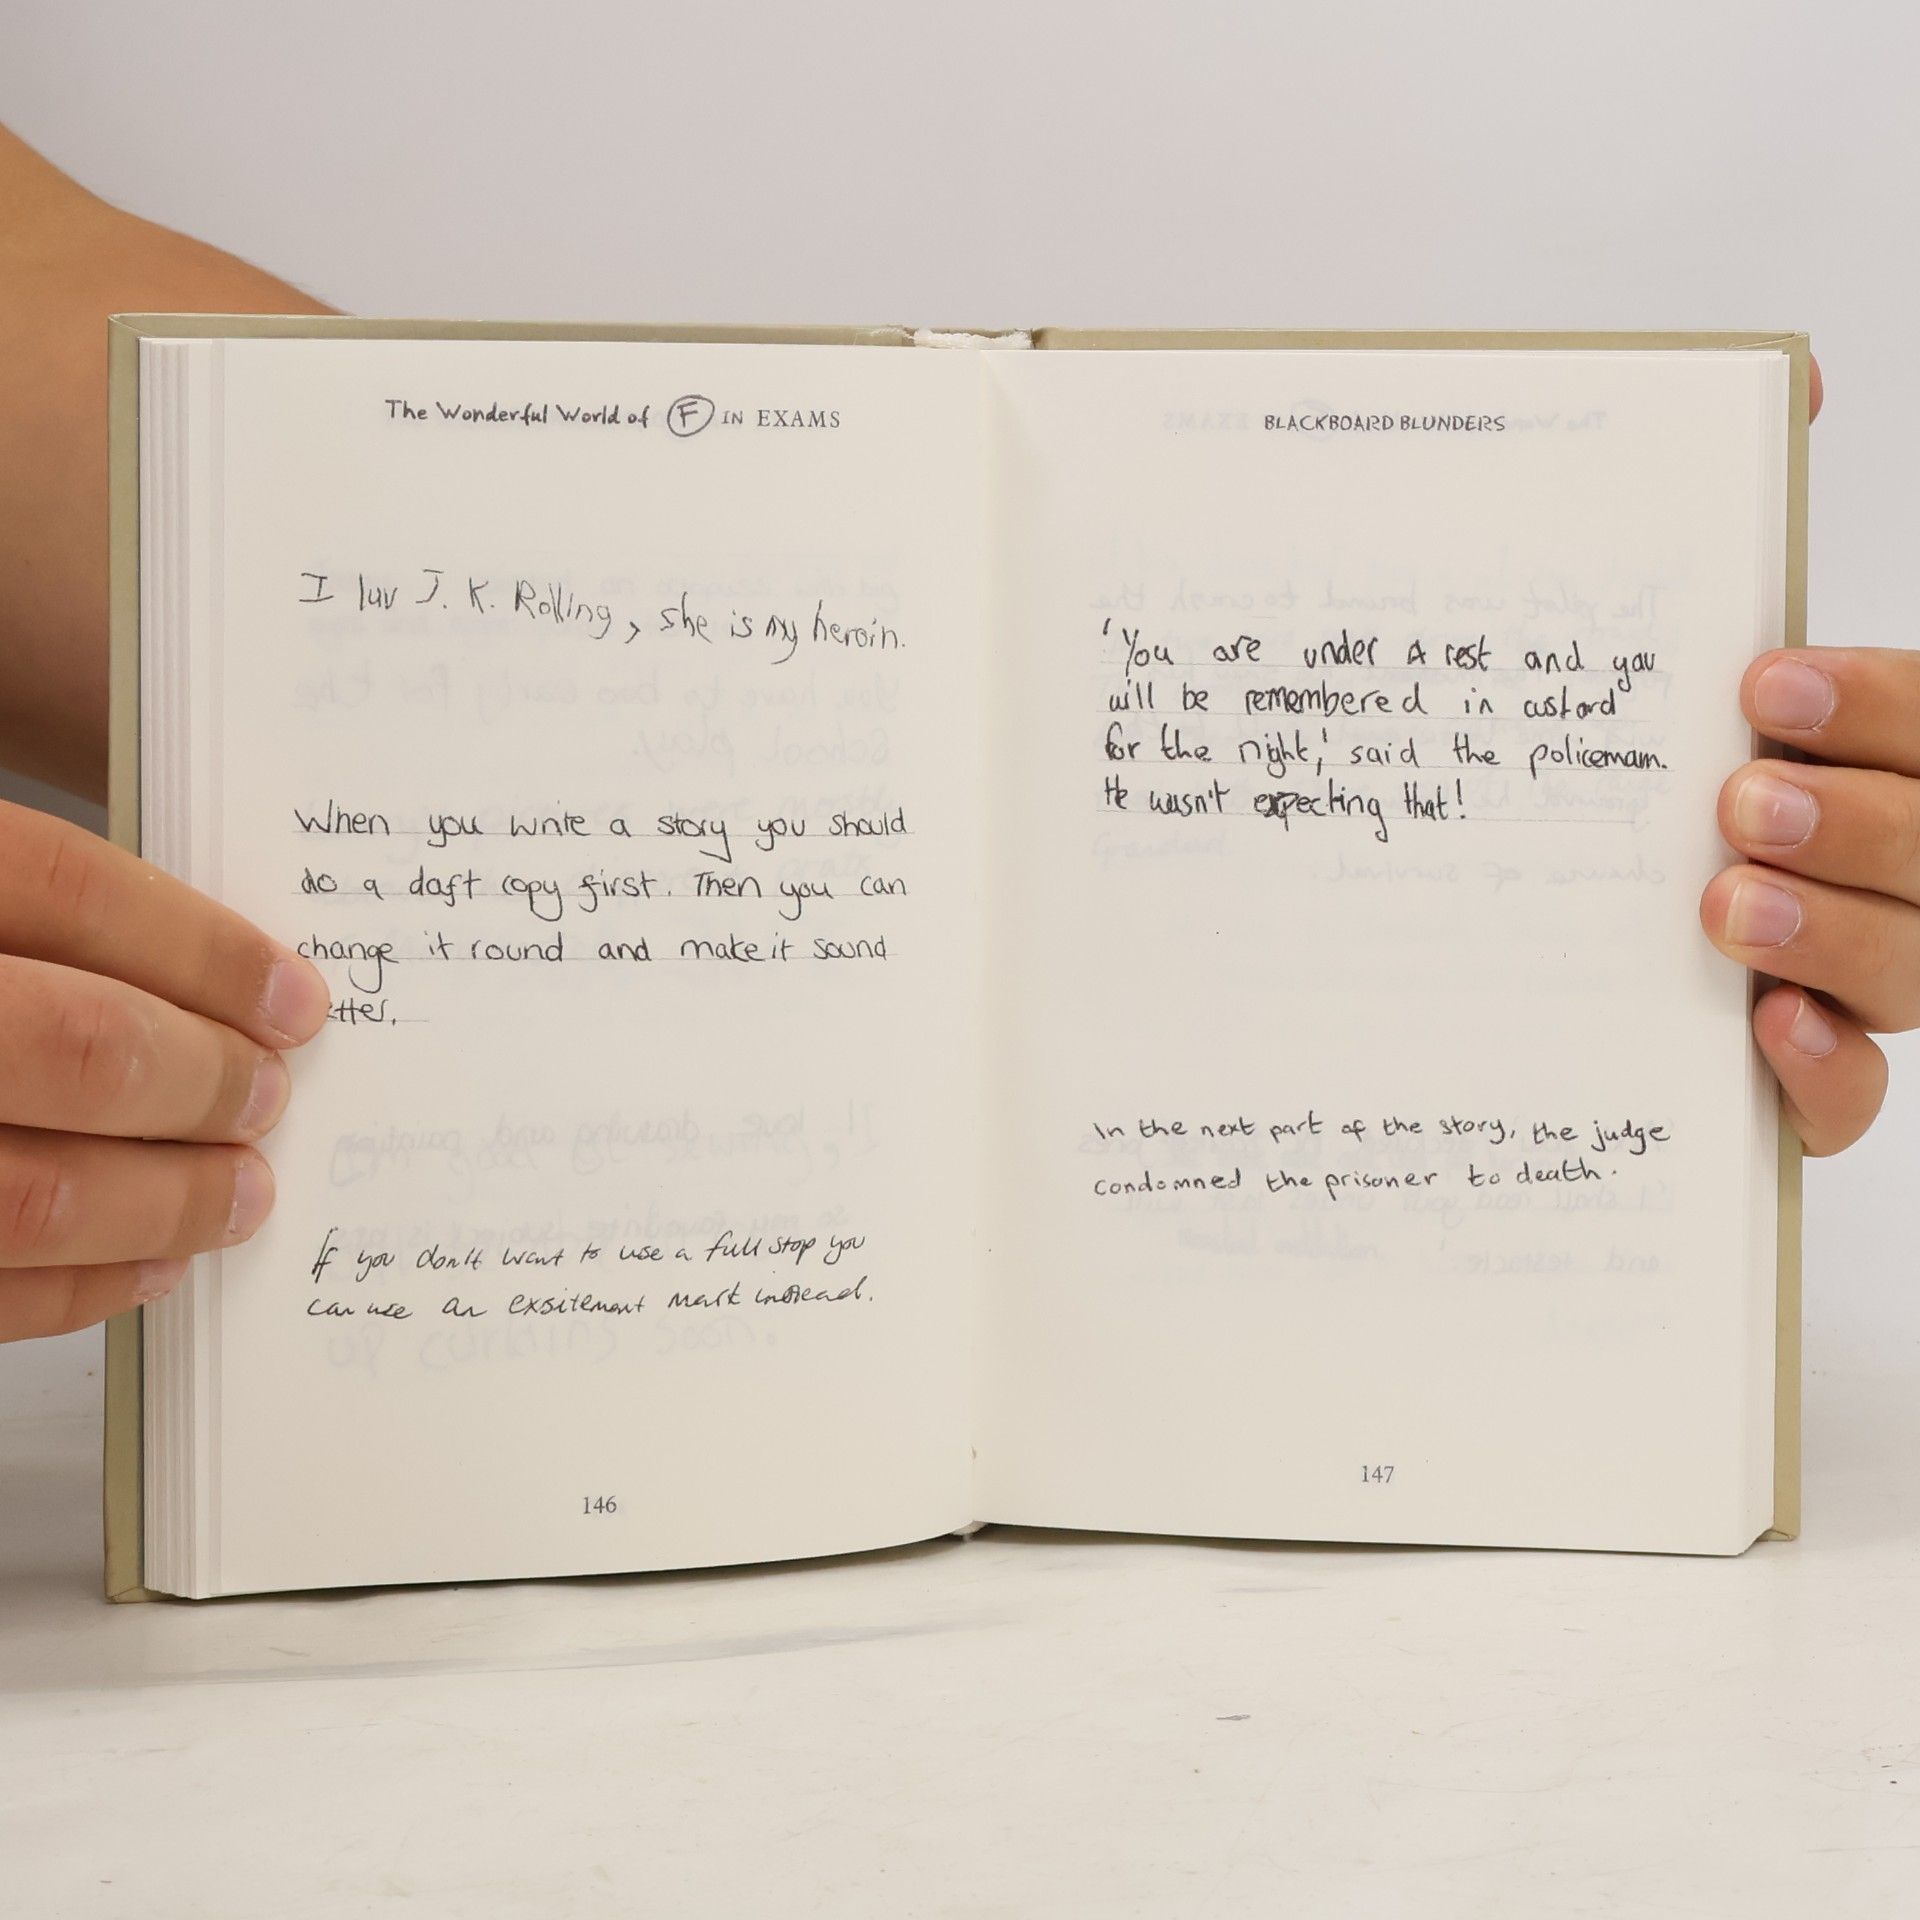 The Wonderful World of F IN EXAMS
I luv J. K. Rolling, she is my heroin.
When you write a story you should
do a daft copy first. Then you can
change it round and make it sound
etter.
If you don't want to use a full stop you
can use an exsitement mark instead.
146
BLACKBOARD BLUNDERS
'You are under A rest and you
will be remembered in custard
for the night,' said the policemam.
He wasn't expecting that!
In the next part of the story, the judge
condomned the prisoner to death.
147